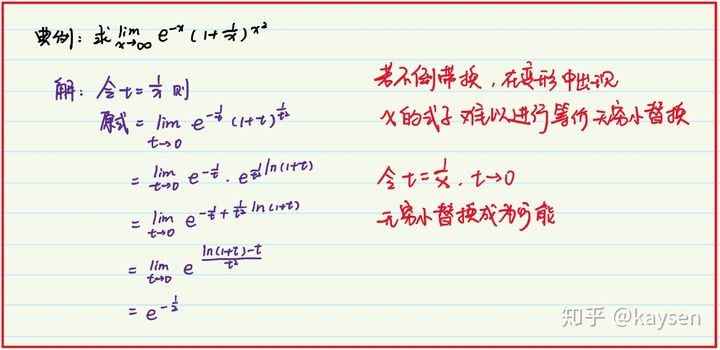 典例：求 lim x→∞ e^{-x} (1+1/x)^{x²}
解：令 t=1/x 则
原式 = lim t→0 e^{-1/t} (1+t)^{1/t²}
= lim t→0 e^{-1/t} · e^{1/t² ln(1+t)}
= lim t→0 e^{-1/t + 1/t² ln(1+t)}
= lim t→0 e^{(ln(1+t)-t)/t²}
= e^{-1/2}
若不倒带换，在变形中出现
x的式子难以进行等价无穷小替换
令 t=1/x . t→0
无穷小替换成为可能
知乎 @kaysen